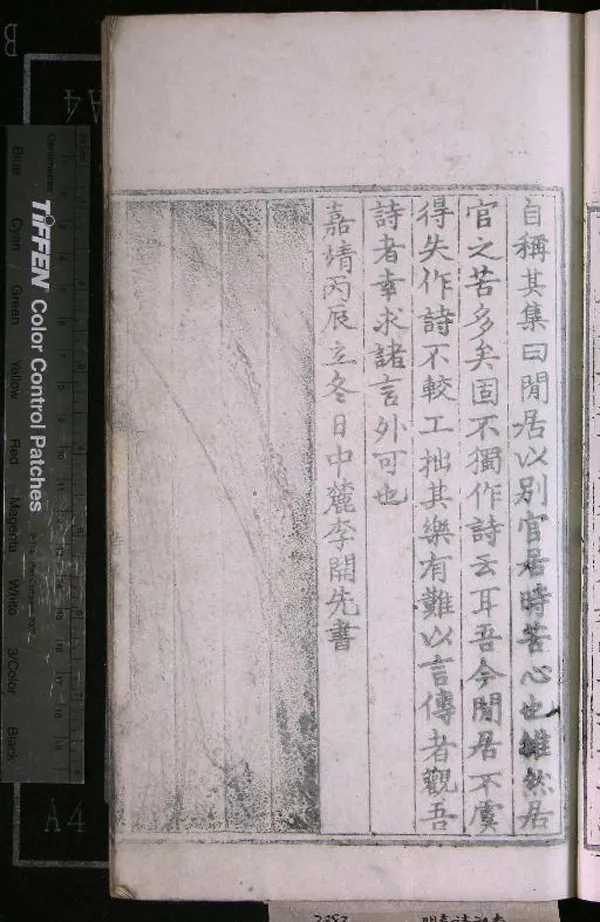 自稱其集曰閒居以別官居時苦心也雖然居
官之苦多矣固不獨作詩云耳吾今閒居不虞
得失作詩不較工拙其樂有難以言傳者觀吾
詩者幸求諸言外可也
嘉靖丙辰立冬日中麓李開先書
TIFFEN Color Control Patches
Blue
Cyan
Green
Yellow
Red
Magenta
White
3/Color
Black
Centimetres
A4
A4
B